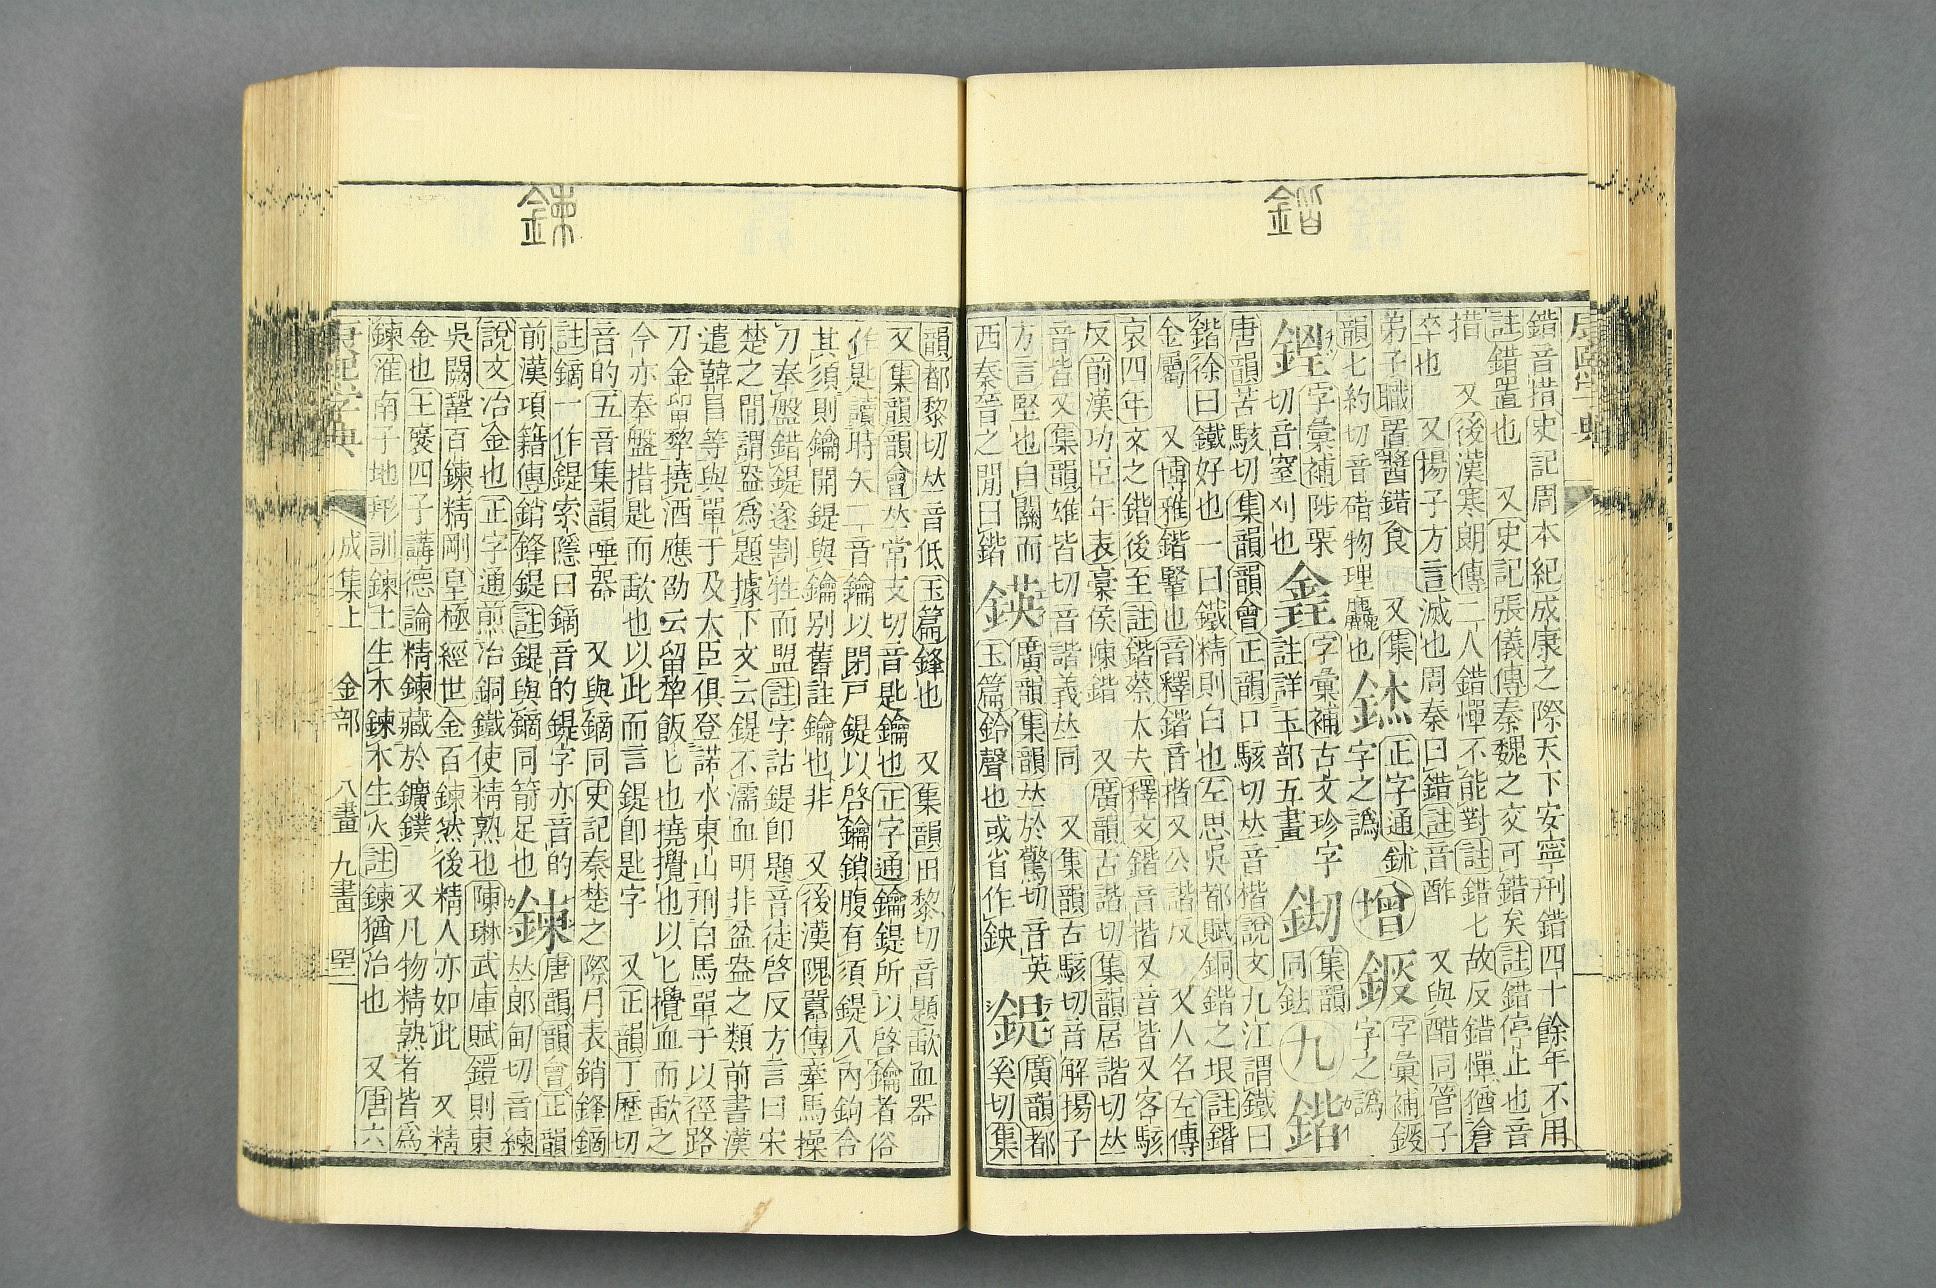 鍇
錯音措史記周本紀成康之際天下安寧刑錯四十餘年不用
註錯置也 又史記張儀傳秦魏之交可錯矣註錯停止也音
措 又後漢寒朗傳二人錯愕不能對註錯七故反錯愕猶倉
卒也 又揚子方言滅也周秦曰錯註音酢 又與醋同管子
弟子職置醬錯食 又集
韻七約切音碏物理麤也
正字通鉥
字之譌
增
鋄
字彙補鋄
字之譌
字彙補陟栗
切音窒刈也
字彙補古文珍字
註詳玉部五畫
鋤
集韻
同鉣
九
鍇
唐韻苦駭切集韻韻會正韻口駭切𠀤音楷說文九江謂鐵曰
鍇徐曰鐵好也一曰鐵精則白也左思吳都賦銅鍇之垠註鍇
金屬 又博雅鍇鋻也音釋鍇音揩又公諧反 又人名左傳
哀四年文之鍇後至註鍇蔡大夫釋文鍇音揩又音皆又客駭
反前漢功臣年表槀侯陳鍇 又廣韻古諧切集韻居諧切𠀤
音皆又集韻雄皆切音諧義𠀤同 又集韻古駭切音解揚子
方言堅也自關而
西秦晉之閒曰鍇
鍈
廣韻集韻𠀤於驚切音英
玉篇鈴聲也或省作鉠
鍉
廣韻都
奚切集
鍊
韻都黎切𠀤音低玉篇鋒也 又集韻田黎切音題歃血器
又集韻韻會𠀤常支切音匙鑰也正字通鑰鍉所以啓鑰者俗
作匙讀時矢二音鑰以閉戸鍉以啓鑰鎖腹有須鍉入內鉤合
其須則鑰開鍉與鑰別舊註鑰也非 又後漢隗囂傳牽馬操
刀奉盤錯鍉遂割牲而盟註字詁鍉卽題音徒啓反方言曰宋
楚之閒謂盌爲題據下文云鍉不濡血明非盆盎之類前書漢
遣韓昌等與單于及大臣俱登諾水東山刑白馬單于以徑路
刀金留犂撓酒應劭云留犂飯匕也撓攪也以匕攪血而歃之
今亦奉盤措匙而歃也以此而言鍉卽匙字 又正韻丁歷切
音的五音集韻唾器 又與鏑同史記秦楚之際月表銷鋒鏑
註鏑一作鍉索隱曰鏑音的鍉字亦音的
前漢項籍傳銷鋒鍉註鍉與鏑同箭足也
鍊
唐韻韻會正韻
𠀤郎甸切音練
說文冶金也正字通煎冶銅鐵使精熟也陳琳武庫賦鎧則東
吳闕鞏百鍊精剛皇極經世金百鍊然後精人亦如此 又精
金也王襃四子講德論精鍊藏於鑛鏷 又凡物精熟者皆爲
鍊淮南子地形訓鍊土生木鍊木生火註鍊猶治也 又唐六
康熙字典
戌集上
金部
八畫
九畫